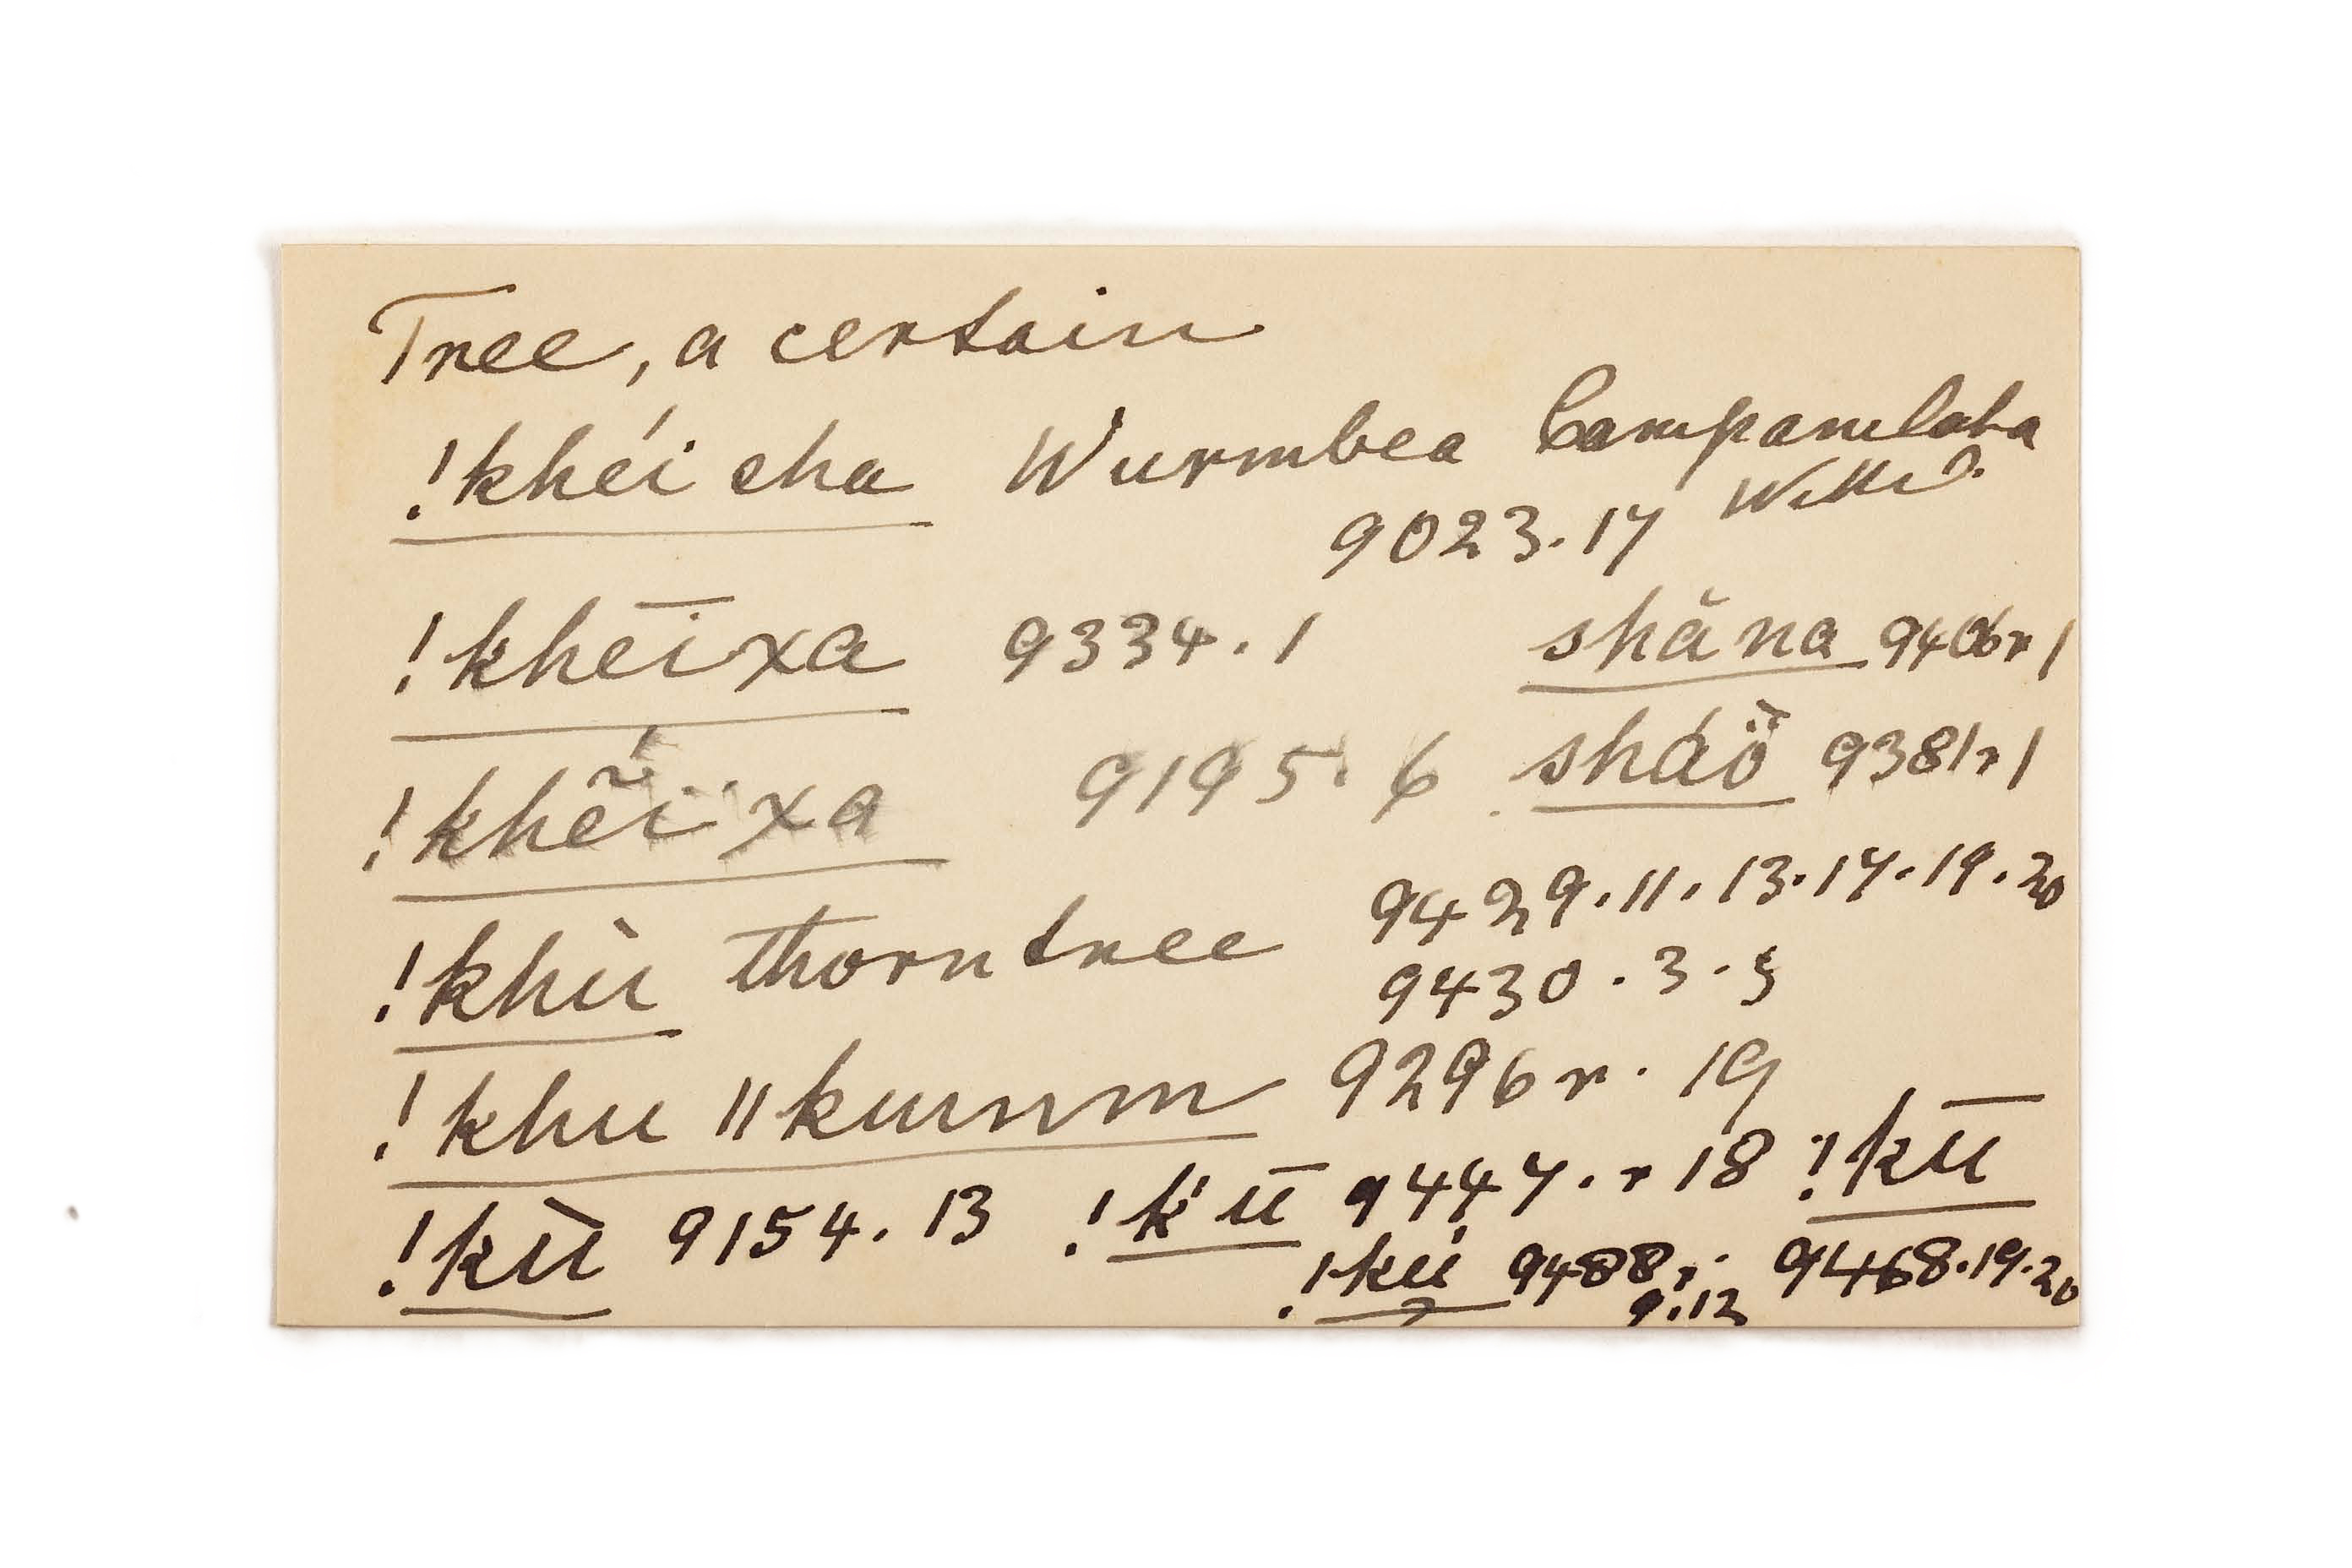 Tree, a certain
!khéi cha Wurmbea Campanulata
9023.17 Willd.
!khe͞ixa 9334.1 shăna 9406r1
!khẽíxa 9195.6 sháö̀ 9381r1
!khù thorntree 9429.11.13.17.19.20
9430.3.5
!khu ǁkumm 9296r.19
!kù 9154.13 !k'ū 9447.r18 !kū
!kú 9488r. 9468.19.20
9.12